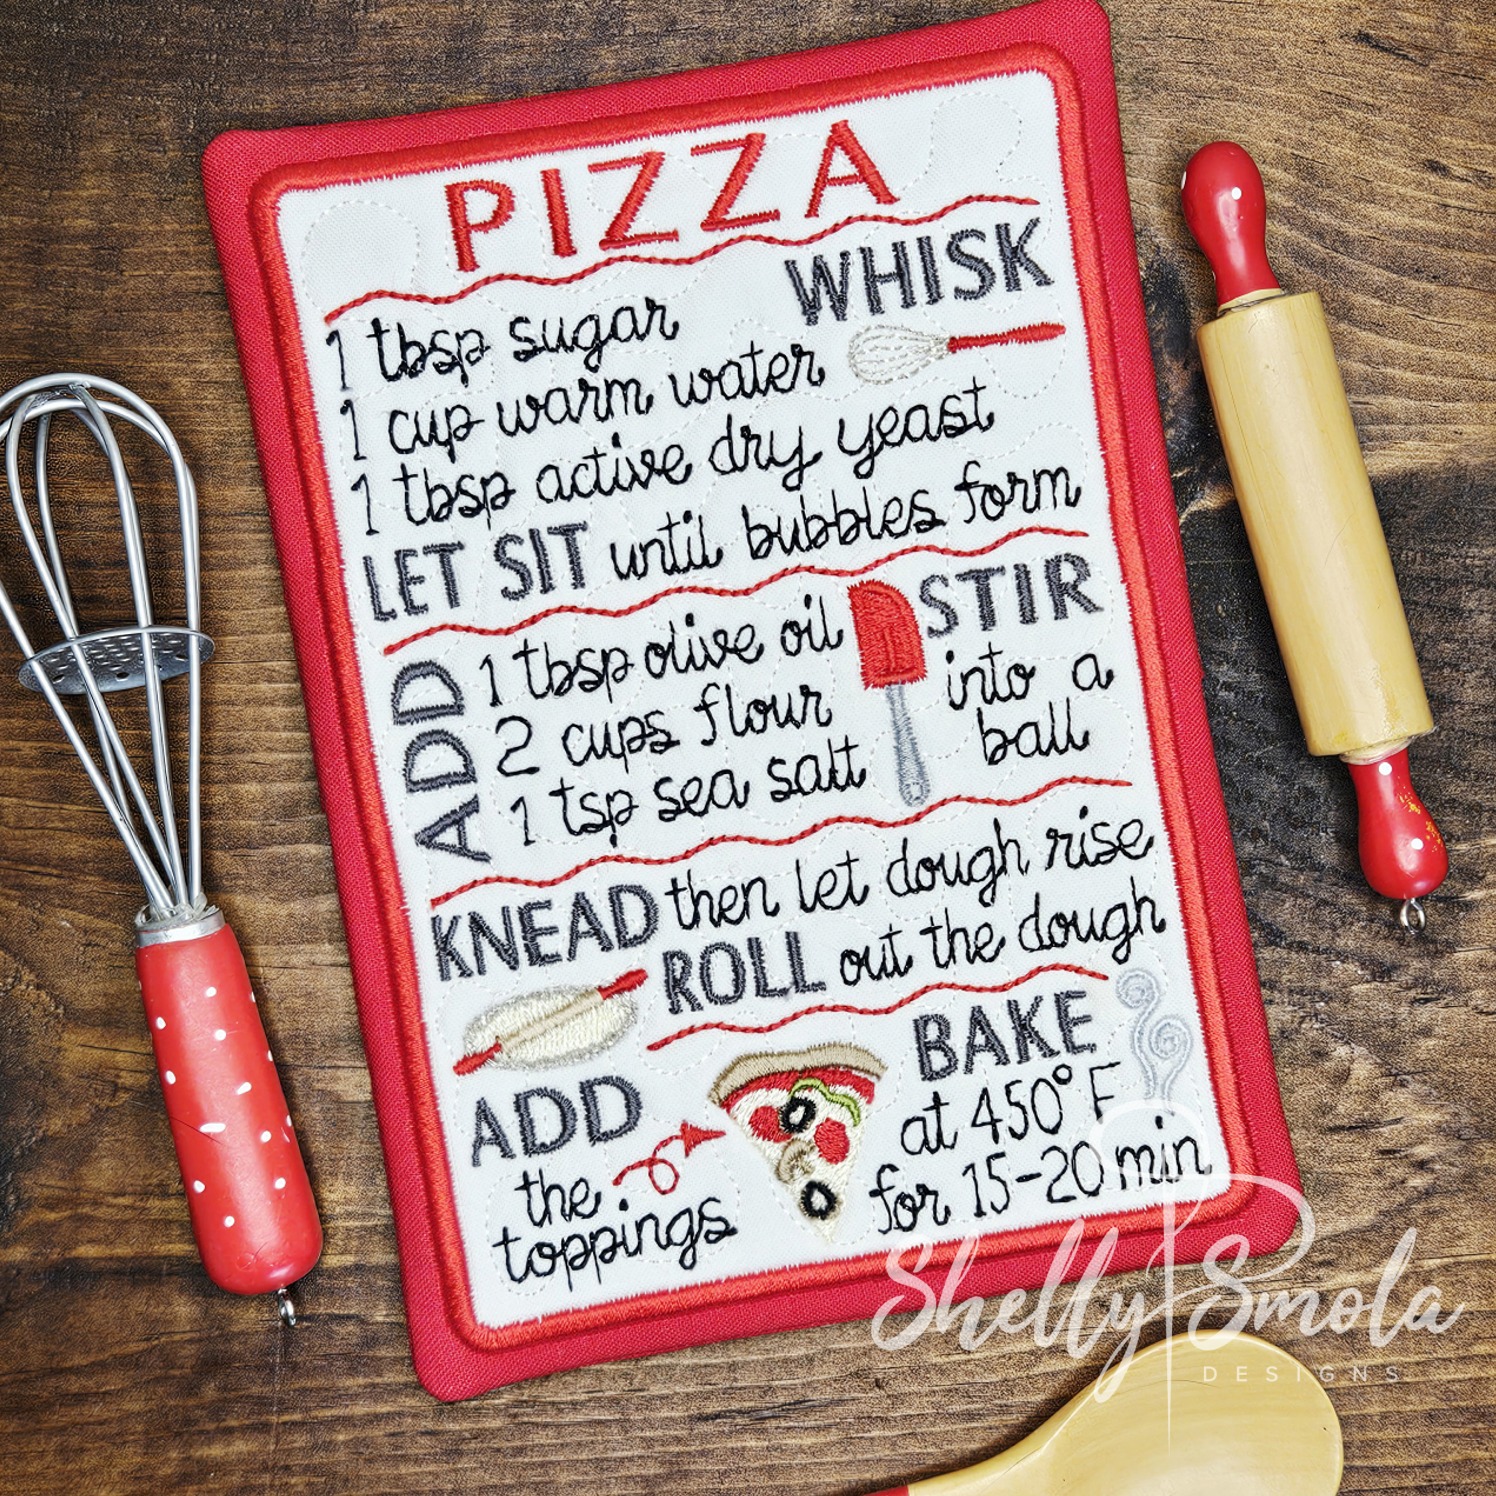 PIZZA
WHISK
1 tbsp sugar
1 cup warm water
1 tbsp active dry yeast
LET SIT until bubbles form
ADD
1 tbsp olive oil
2 cups flour
1 tsp sea salt
STIR
into a
ball
KNEAD then let dough rise
ROLL out the dough
ADD
the
toppings
BAKE
at 450° F
for 15-20 min
Shelly Smola
DESIGNS